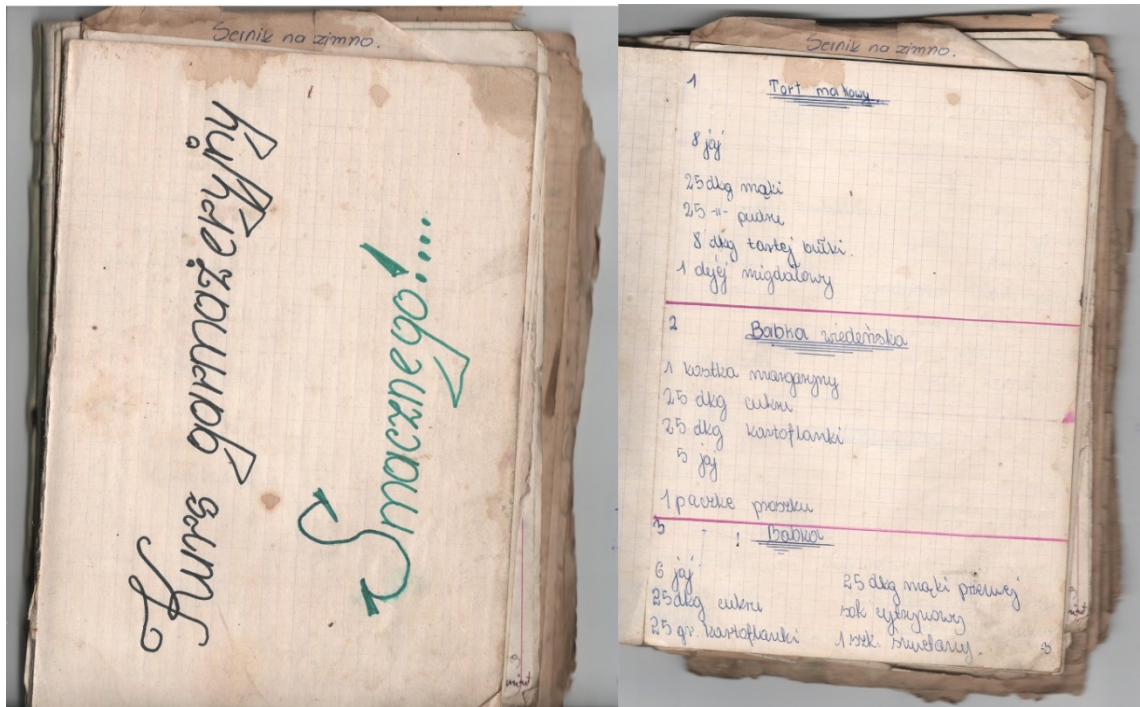 Sernik na zimno.
Kurs garmażeryjny
Smacznego!....
minut
Sernik na zimno.
1 Tort makowy.
8 jaj
25 dkg mąki
25 -"- pudru
8 dkg tartej bułki.
1 migdałowy
2 Babka wiedeńska
1 kostka margaryny
25 dkg cukru
25 dkg kartoflanki
5 jaj
1 paczke proszku
3 ! Babka
6 jaj
25 dkg cukru
25 gr. kartoflanki
25 dkg mąki
sok cytrynowy
1 szk. śmietany.
minut